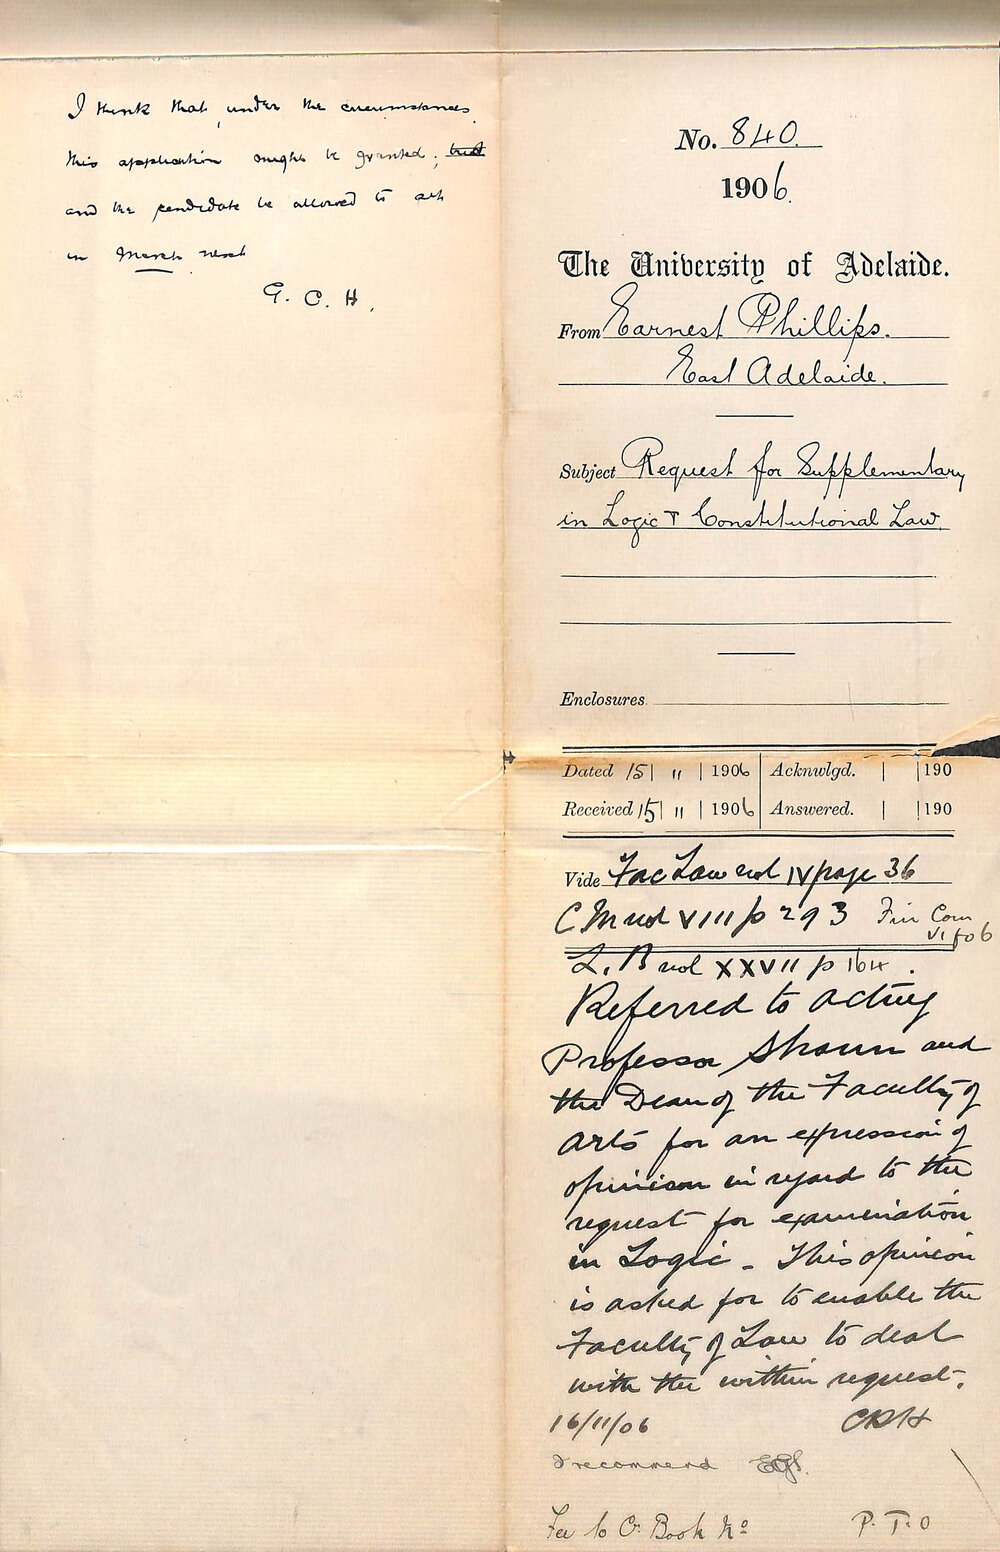 I think that, under the circumstances
this application ought be granted; but
and the candidate be allowed to sit
in March next
G. C. H.
No. 840.
1906.
The University of Adelaide.
From Earnest Phillips.
East Adelaide.
Subject Request for Supplementary
in Logic & Constitutional Law.
Enclosures
Dated 15 | 11 | 1906 | Acknwlgd. | | 190
Received 15 | 11 | 1906 | Answered. | | 190
Vide Fac Law vol IV page 36
C M vol VIII p 293 Fin Com
VI p 06
L. B vol XXVII p 164.
Referred to acting
Professor and
the Dean of the Faculty of
Arts for an expression of
opinion in regard to the
request for examination
in Logic - This opinion
is asked for to enable the
Faculty of Law to deal
with the within request.
16/11/06 CRH
I recommend
Fee to C. Book No
P.T.O